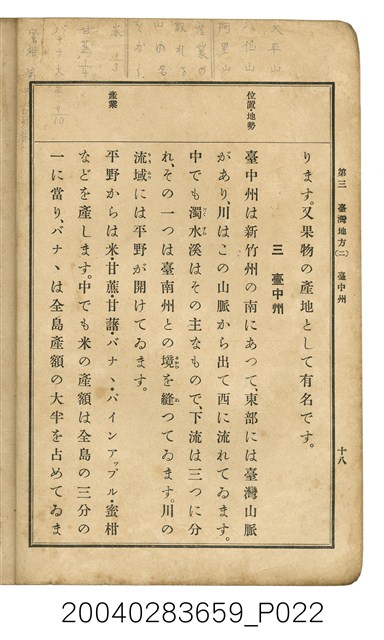 第三 臺灣地方(二) 臺中州
十八
ります。又果物の產地として有名です。
三 臺中州
位置・地勢
臺中州は新竹州の南にあつて、東部には臺灣山脈
があり、川はこの山脈から出て西に流れてゐます。
中でも濁水溪はその主なもので、下流は三つに分
れ、その一つは臺南州との境を縫つてゐます。川の
流域には平野が開けてゐます。
產業
平野からは米・甘蔗・甘藷・バナヽ・パインアップル・蜜柑
などを產します。中でも米の產額は全島の三分の
一に當り、バナヽは全島產額の大半を占めてゐま
20040283659_P022